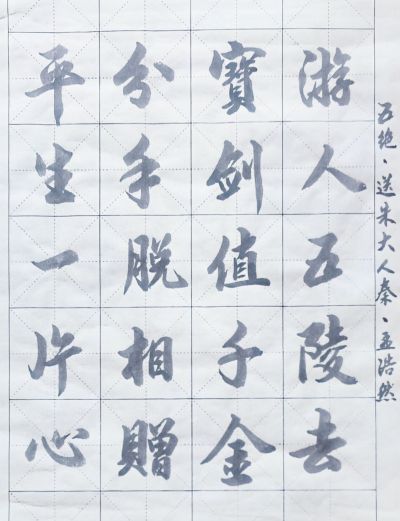 五绝·送朱大入秦·孟浩然
游人五陵去
寶劍值千金
分手脱相贈
平生一片心